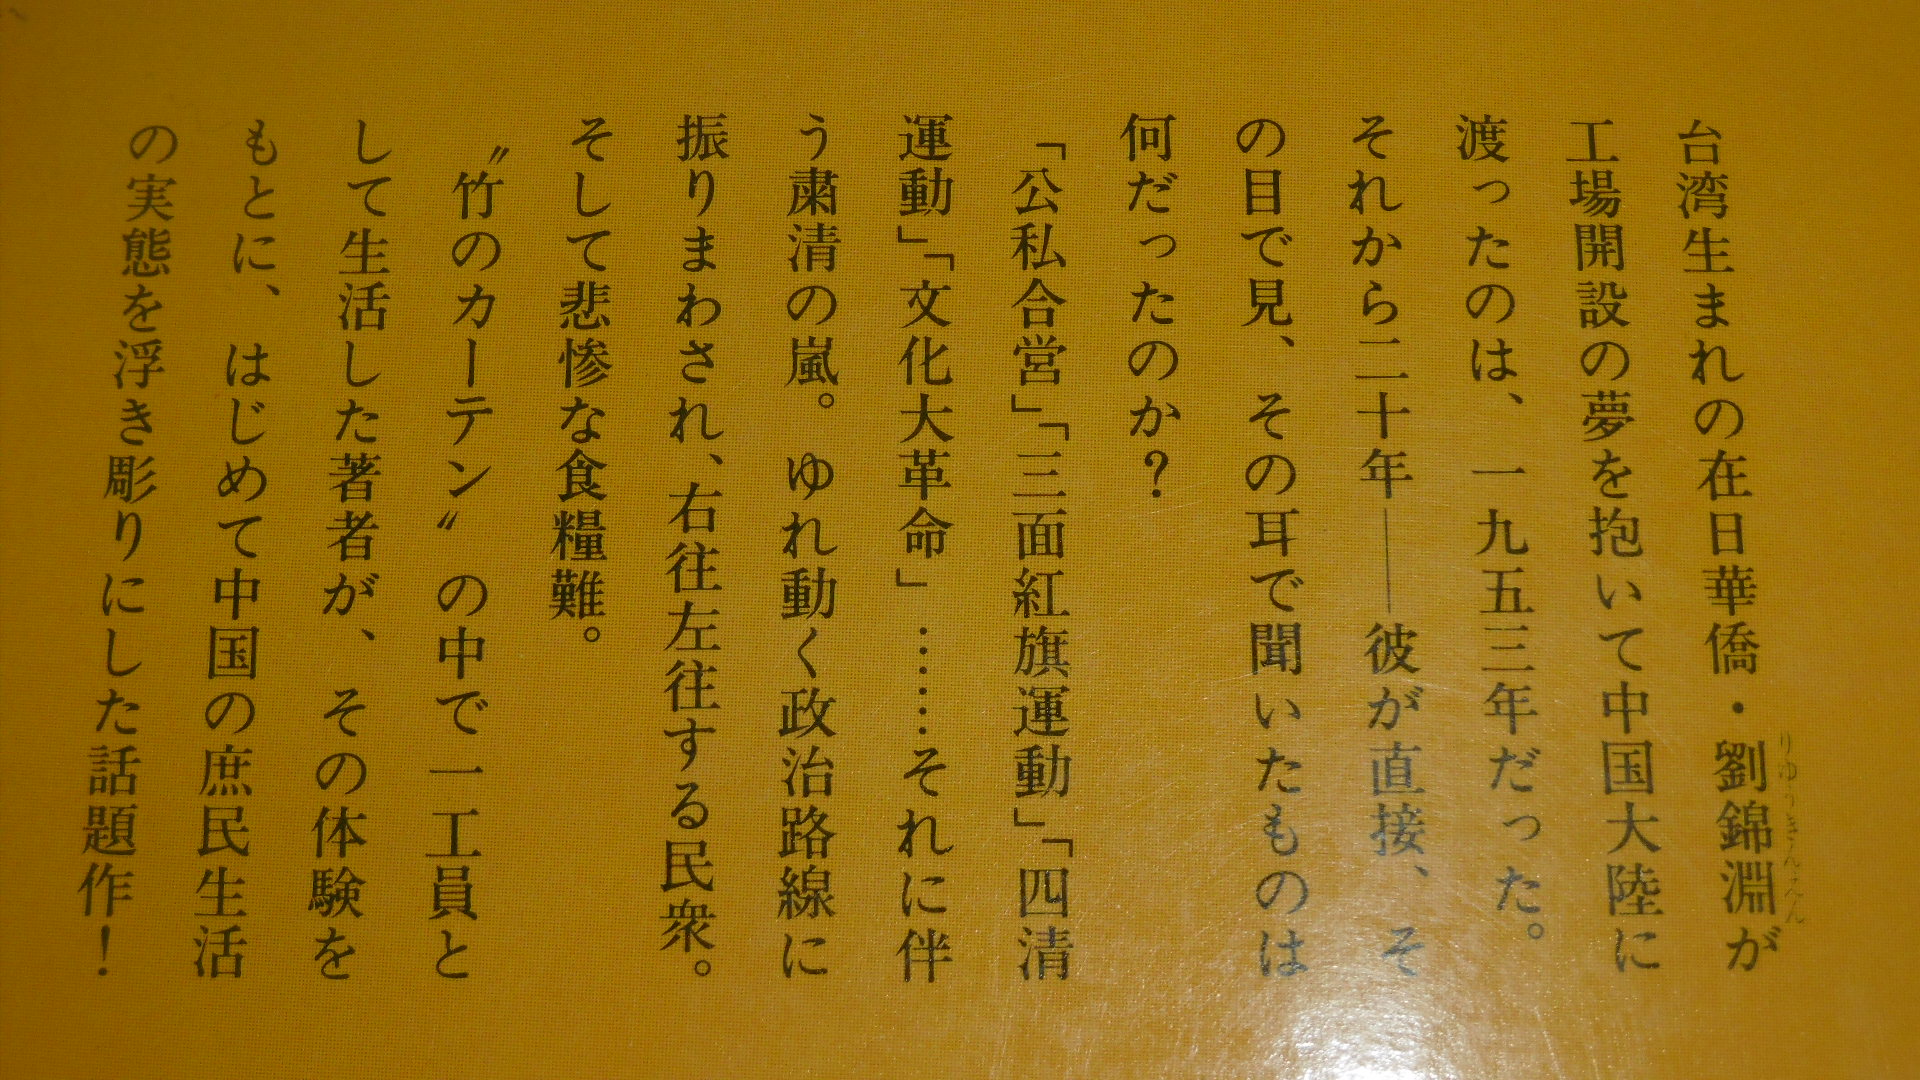 台湾生まれの在日華僑・劉錦淵が
りゅうきんえん
工場開設の夢を抱いて中国大陸に
渡ったのは、一九五三年だった。
それから二十年――彼が直接、そ
の目で見、その耳で聞いたものは
何だったのか?
「公私合営」「三面紅旗運動」「四清
運動」「文化大革命」……それに伴
う粛清の嵐。ゆれ動く政治路線に
振りまわされ、右往左往する民衆。
そして悲惨な食糧難。
〝竹のカーテン〟の中で一工員と
して生活した著者が、その体験を
もとに、はじめて中国の庶民生活
の実態を浮き彫りにした話題作!